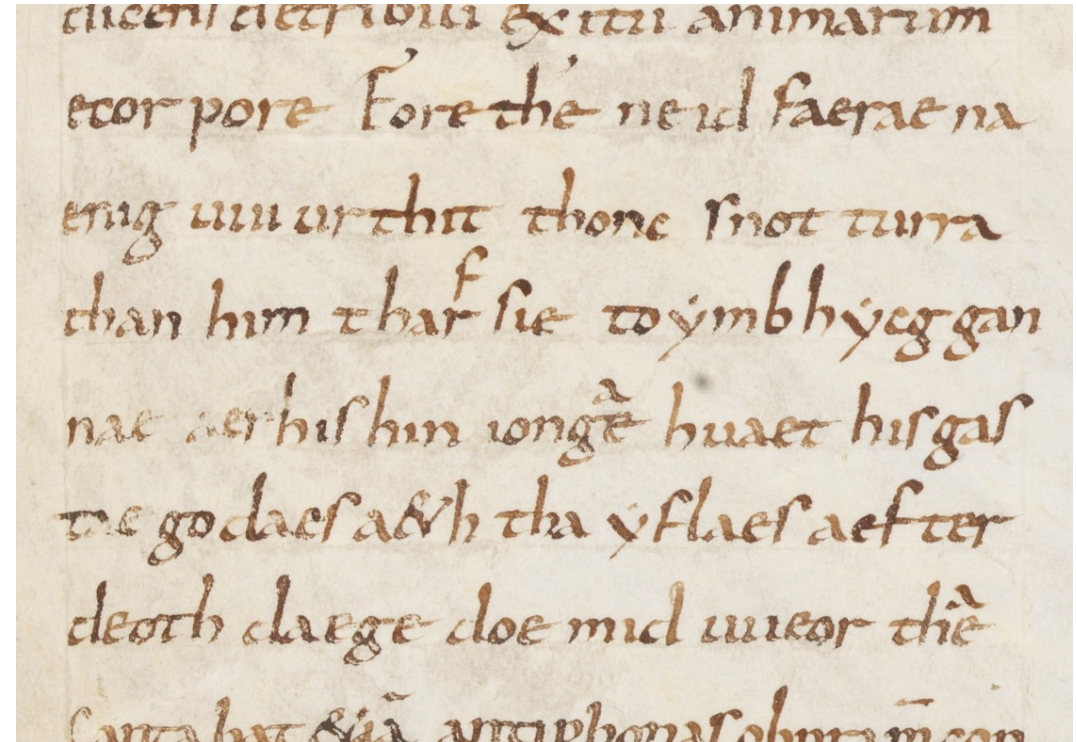 dicens detribili exitu animarum
ecor pore Fore the neid faerae na
enig uuiurthit thonc snot turra
than him tharf sie to ẏmb hẏcg gan
nae aer his hin iongae huaet his gas
tae godaes a&h tha ẏflaes aef ter
deoth daege doe mid uueor thae
Cantabat &iā antiphonas ob nr̄am con